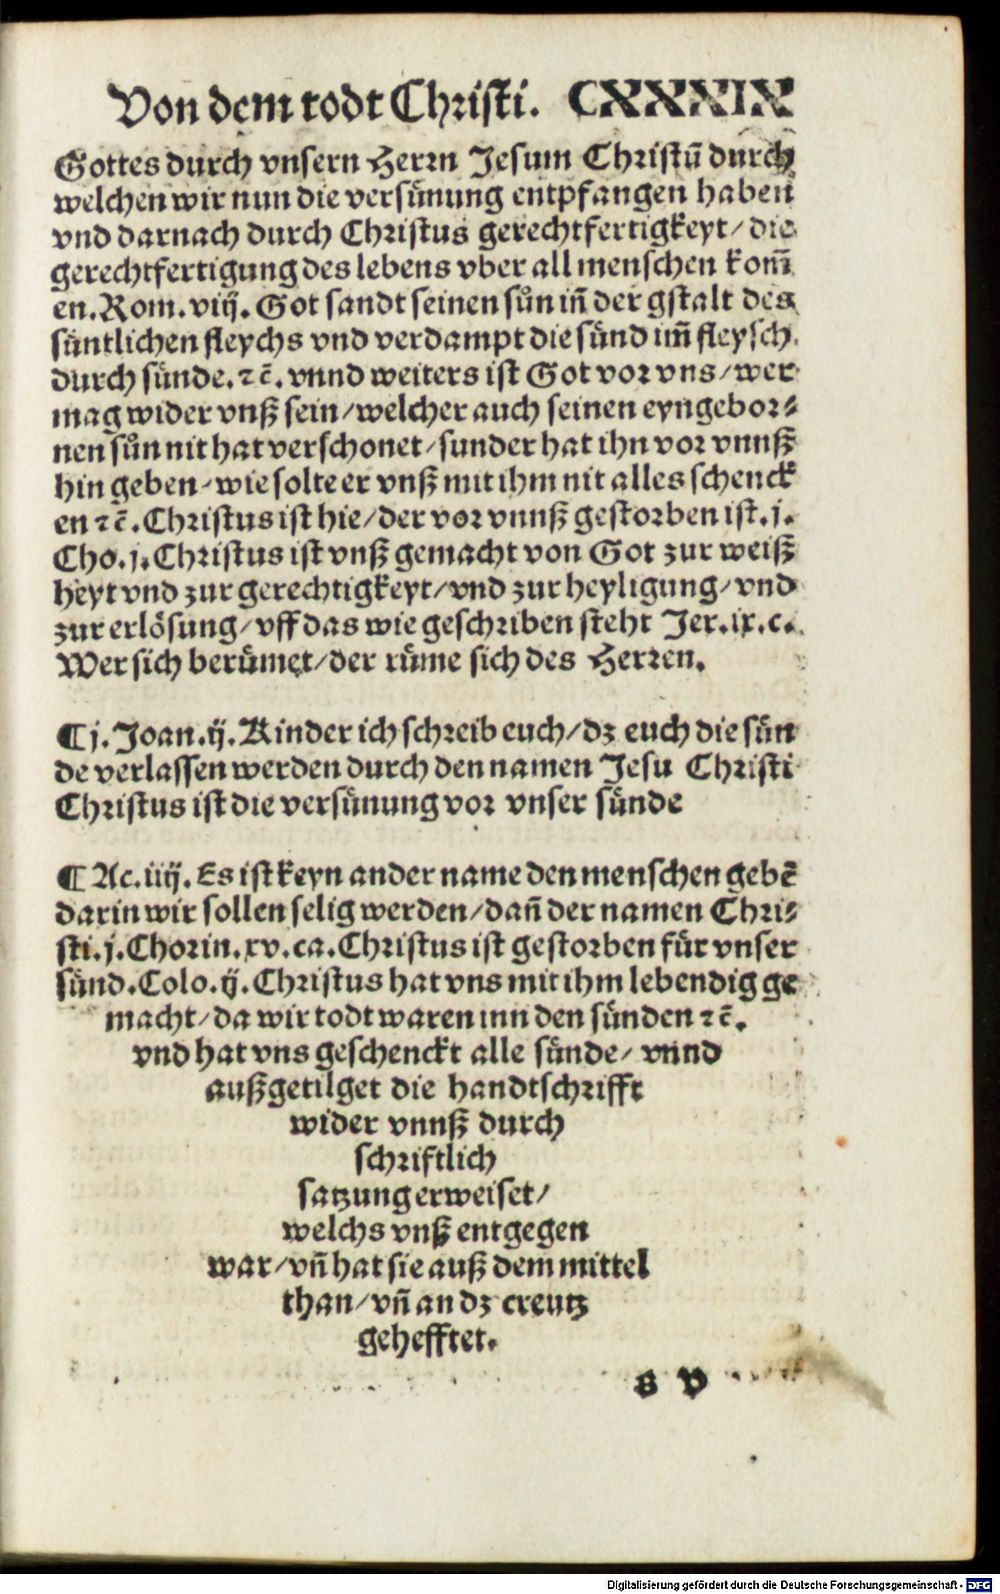 Von dem todt Christi. CXXXIX
Gottes durch vnsern Herrn Jesum Christū durch
welchen wir nun die versünung entpfangen haben
vnd darnach durch Christus gerechtfertigkeyt/ die
gerechtfertigung des lebens vber all menschen kom̄
en. Rom. viij. Got sandt seinen sůn in̄ der gstalt des
süntlichen fleychs vnd verdampt die sünd im̄ fleysch.
durch sünde. ⁊c̄. vnnd weiters ist Got vor vns/ wer
mag wider vnß sein/ welcher auch seinen eyngebor⸗
nen sůn nit hat verschonet/ sunder hat ihn vor vnnß
hin geben/ wie solte er vnß mit ihm nit alles schenck
en ⁊c̄. Christus ist hie/ der vor vnnß gestorben ist. j.
Cho. j. Christus ist vnß gemacht von Got zur weiß
heyt vnd zur gerechtigkeyt/ vnd zur heyligung/ vnd
zur erlösung/ vff das wie geschriben steht Jer. ix. c.
Wer sich berümet/ der rüme sich des Herren.
¶ j. Joan. ij. Kinder ich schreib euch/ dz euch die sün
de verlassen werden durch den namen Jesu Christi
Christus ist die versünung vor vnser sünde
¶ Ac. iiij. Es ist keyn ander name den menschen gebē
darin wir sollen selig werden/ dan̄ der namen Chri⸗
sti. j. Chorin. xv. ca. Christus ist gestorben für vnser
sünd. Colo. ij. Christus hat vns mit ihm lebendig ge
macht/ da wir todt waren inn den sünden ⁊c̄.
vnd hat vns geschenckt alle sünde/ vnnd
außgetilget die handtschrifft
wider vnnß durch
schriftlich
satzung erweiset/
welchs vnß entgegen
war/ vn̄ hat sie auß dem mittel
than/ vn̄ an dz creutz
gehefftet.
s v
Digitalisierung gefördert durch die Deutsche Forschungsgemeinschaft - DFG